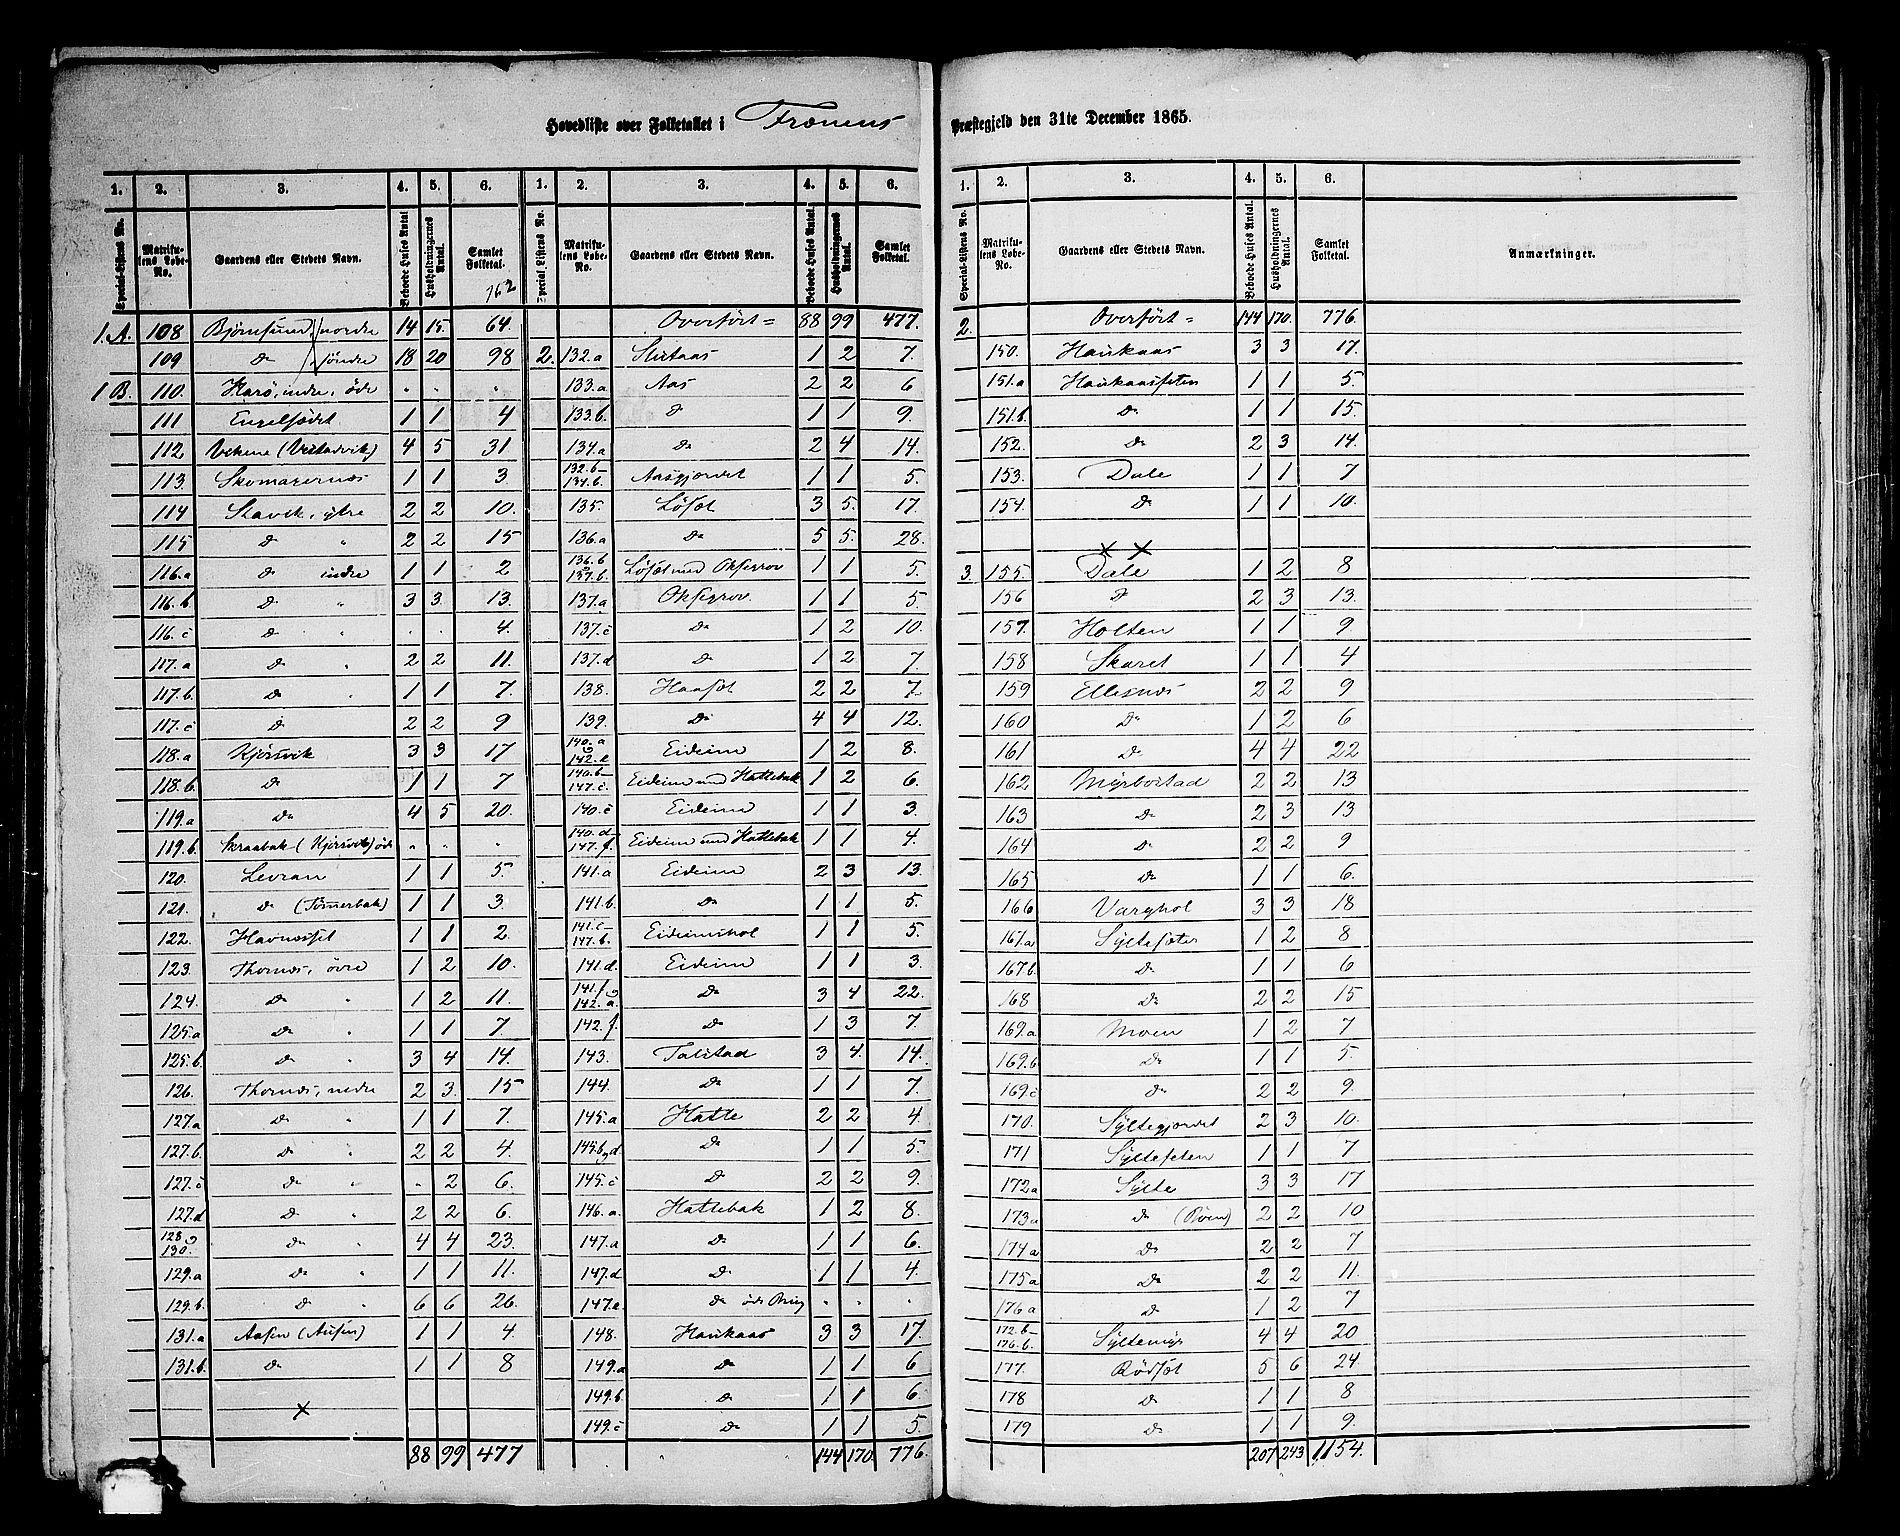 Hovedliste over Folketallet i Frænens Præstegjeld den 31te December 1865.
1. 2. 3. 4. 5. 6. 1. 2. 3. 4. 5. 6.
Special-Listens No. Matrikulens Løbe-No. Gaardens eller Stedets Navn. Beboede Huses Antal. Husholdningernes Antal. Samlet Folketal. Special Listens No. Matrikulens Løbe-No. Gaardens eller Stedets Navn. Beboede Huses Antal. Husholdningernes Antal. Samlet Folketal.
162
1.A. 108 Bjørnsund, nordre 14 15. 64.
109 Do söndre 18 20 98
1 B. 110. Harö, indre, öde " " "
111 Engelsödet 1 1 4
112 Vikene (Vestadvik) 4 5 31
113. Skomagernæs 1 1 3
114 Stavik, ytre 2 2 10.
115 Do " 2 2 15
116.a Do indre 1 1 2
116.b Do " 3 3. 13.
116.c Do " . . 4.
117.a Do " 2 2 11.
117.b. Do " 1 1 7.
117.c Do 2 2 9
118.a Kjörsvik 3 3 17
118.b. Do 1 1 7
119.a Do 4 5 20.
119.b. Skraabak (Kjörsvik) öde " " "
120. Levran 1 1 5.
121. Do (Tömmerbak) 1 1 3.
122. Havnesset 1 1 2.
123. Thornæs, övre 1 2 10.
124. Do " 1 2 11.
125.a Do " 1 1 7.
125.b. Do " 3 4 14.
126. Thornæs, nedre 2 3. 15
127.a Do " 1 1 7.
127.b. Do " 2 2 4.
127.c Do " " 2 6.
127.d Do " 2 2 6.
128 & 130 Do " 4 4 23.
129.a Do " 1 1 11.
129.b. Do " 6 6 26.
131.a Aasen (Ausen) 1 1 4.
131.b. Do 1 1 8
×
88 99 477
Overført = 88 99 477.
2. 132.a Slutaas 1 2 7.
133.a Aas 2 2 6
133.b. Do 1 1 9.
134.a Do 2 4 14.
132.b-134.b. Aasgjerdet 1 1 5.
135. Löset 3 5. 17.
136.a Do 5 5. 28.
136.b & 137.b. Löset med Oksegrov 1 1 5.
137.a Oksegrov. 1 1 5.
137.c Do 1 2 10.
137.d Do 1 2 7.
138. Haaset 2 2 7
139. Do 4 4 12.
140.a & 142.e Eideim 1 2 8.
140.b-147.c. Eideim med Hattebak 1 2 6.
140.c Eideim 1 1 3.
140.d-147.f. Eideim med Hattebak 1 1 4.
141.a Eideim 2 3 13.
141.b. Do 1 1 5.
141.c-147.b. Eideimshol 1 1 5.
141.d. Eideim 1 1 3.
141.f & 142.a. Do 3 4 22.
142.f. Do 1 3 7.
143. Talstad 3 4. 14.
144. Do 1 1 7.
145.a Hatte 2 2 4
145.b & d. Do 1 1 5.
145.c Do 2 2 9.
146.a. Hattebak 1 2 8.
147.a Do 1 1 6.
147.d Do 1 1 4.
147.e Do öde Brug " " "
148. Haukaas 3 3 17.
149.a Do 1 1 6
149.b Do 1 1 6.
149.c Do 1 1 5.
144 170. 776.
1. 2. 3. 4. 5. 6.
Special-Listens No. Matrikulens Løbe-No. Gaardens eller Stedets Navn. Beboede Huses Antal. Husholdningernes Antal. Samlet Folketal. Anmærkninger.
2. Overført = 144 170. 776.
150. Haukaas 3 3 17.
151.a Haukaassæten 1 1 5.
151.b. Do 1 1 15.
152. Do 2 3 14.
153. Dale 1 1 7
154. Do 1 1 10.
× ×
3. 155. Dale 1 2 8
156 Do 2 3 13.
157. Holten 1 1 9
158 Skaret 1 1 4
159 Ellesnæs 2 2 9
160 Do 1 2 6
161 Do 4 4 22
162 Myrbostad 2 2 13
163 Do 2 3 13
164 Do 2 2 9
165 Do 1 1 6.
166 Varghol 3 3 18
167.a Syltesæter 1 2 8
167.b. Do 1 1 6
168 Do 2 2 15
169.a Moen 1 2 7
169.b Do 1 1 5.
169.c Do 2 2 9
170. Syltegjerdet 2 3 10.
171 Syltesæten 1 1 7
172a Sylte 3 3 17
173a Do (Röen) 2 2 10
174a Do 2 2 7
175a Do 2 2 11.
176a Do 1 2 7
172.b-176.b. Syltemyr 4 4 20
177. Rödset 5 6 24.
178 Do 1 1 8
179 Do 1 1 9.
207 243 1154.